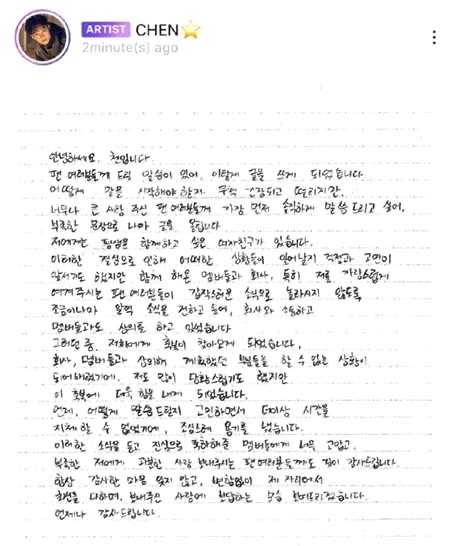 ARTIST CHEN
2minute(s) ago
안녕하세요. 첸입니다
팬 여러분들께 드릴 말씀이 있어, 이렇게 글을 쓰게 되었습니다
어떻게 말을 시작해야할지 무척 긴장되고 떨리지만,
너무나 큰 사랑 주신 팬 여러분들께 가장 먼저 솔직하게 말씀드리고 싶어,
부족한 문장으로 나마 글을 올립니다
저에게는 평생을 함께하고 싶은 여자친구가 있습니다.
이러한 결심으로 인해 어떠한 상황들이 일어날지 걱정과 고민이
앞서기도 했지만 함께 해온 멤버들과 회사, 특히 저를 자랑스럽게
여겨주시는 팬 여러분들이 갑작스러운 소식으로 놀라시지 않도록
조금이나마 일찍 소식을 전하고 싶어, 회사와 소통하고
멤버들과도 상의를 하고 있었습니다
그러던 중, 저희에게 축복이 찾아오게 되었습니다,
회사, 멤버들과 상의해 계획했던 부분들을 할 수 없는 상황이
되어버렸기에, 저도 많이 당황스럽기도 했지만
이 축복에 더욱 힘을 내게 되었습니다.
언제, 어떻게 말씀 드릴지 고민하면서 더이상 시간을
지체 할 수 없었기에, 조심스레 용기를 냈습니다.
이러한 소식을 듣고 진심으로 축하해준 멤버들에게 너무 고맙고,
부족한 저에게 과분한 사랑 보내주시는 팬 여러분들께도 깊이 감사드립니다.
항상 감사한 마음 잊지 않고, 변함없이 제 자리에서
최선을 다하며, 보내주신 사랑에 보답하는 모습 보여드리겠습니다.
언제나 감사드립니다.